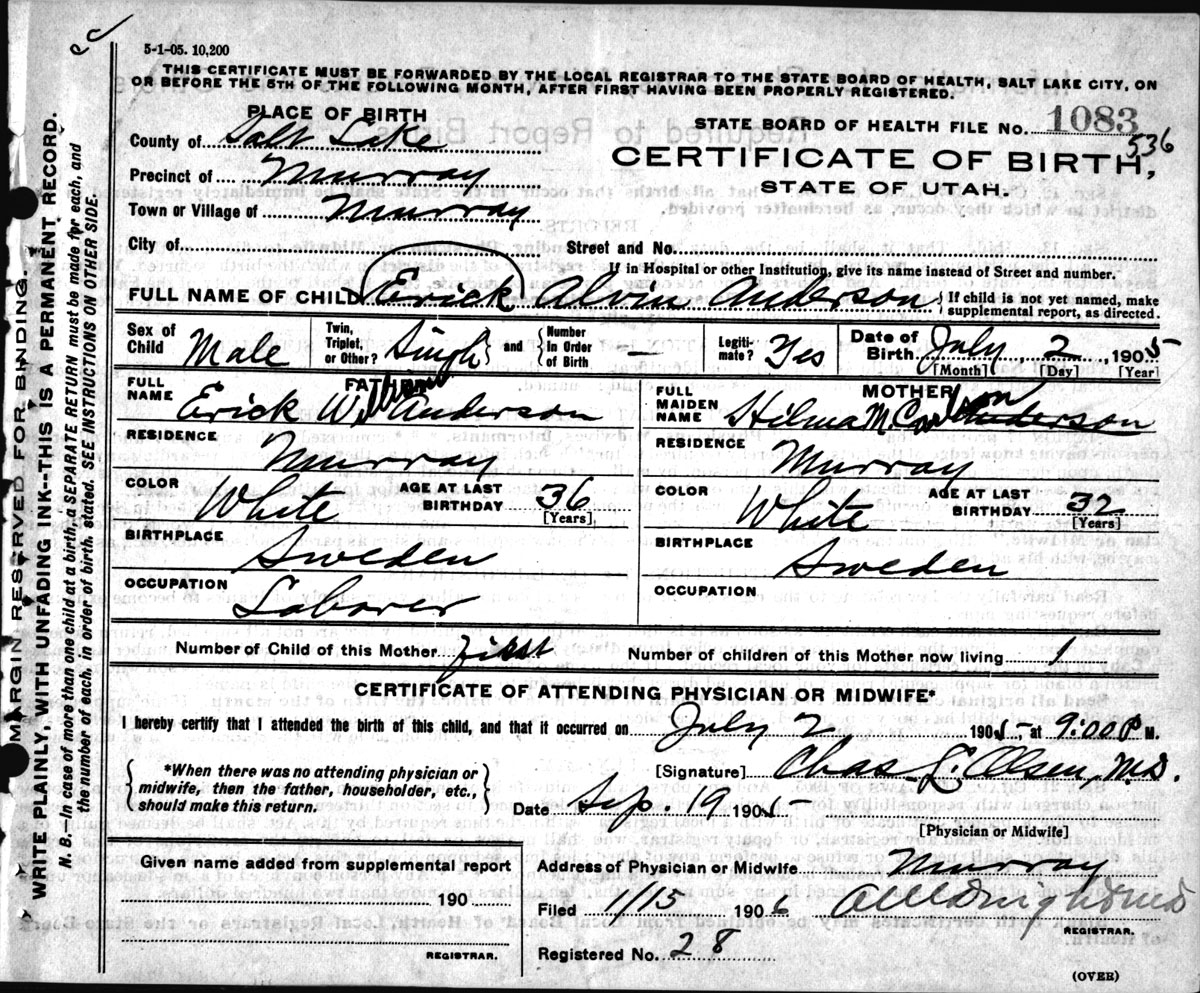 5-1-05. 10,200
THIS CERTIFICATE MUST BE FORWARDED BY THE LOCAL REGISTRAR TO THE STATE BOARD OF HEALTH, SALT LAKE CITY, ON
OR BEFORE THE 5TH OF THE FOLLOWING MONTH, AFTER FIRST HAVING BEEN PROPERLY REGISTERED.
MARGIN RESERVED FOR BINDING.
WRITE PLAINLY, WITH UNFADING INK--THIS IS A PERMANENT RECORD.
N. B.—In case of more than one child at a birth, a SEPARATE RETURN must be made for each, and
the number of each, in order of birth, stated. SEE INSTRUCTIONS ON OTHER SIDE.
PLACE OF BIRTH
County of Salt Lake
Precinct of Murray
Town or Village of Murray
City of
STATE BOARD OF HEALTH FILE No. 1083
536
CERTIFICATE OF BIRTH,
STATE OF UTAH.
Street and No.
If in Hospital or other Institution, give its name instead of Street and number.
FULL NAME OF CHILD Erick Alvin Anderson { If child is not yet named, make
supplemental report, as directed.
Sex of Child Male Twin, Triplet, or Other? Single } and { Number in Order of Birth — Legiti-mate? Yes Date of Birth July 2, 1905
[Month] [Day] [Year]
FATHER
FULL NAME Erick William Anderson
RESIDENCE Murray
COLOR White AGE AT LAST BIRTHDAY 36
[Years]
BIRTHPLACE Sweden
OCCUPATION Laborer
MOTHER
FULL MAIDEN NAME Hilma M. Anderson
RESIDENCE Murray
COLOR White AGE AT LAST BIRTHDAY 32
[Years]
BIRTHPLACE Sweden
OCCUPATION
Number of Child of this Mother first Number of children of this Mother now living 1
CERTIFICATE OF ATTENDING PHYSICIAN OR MIDWIFE*
I hereby certify that I attended the birth of this child, and that it occurred on July 2 1905, at 9:00 P M.
*When there was no attending physician or
midwife, then the father, householder, etc.,
should make this return.
[Signature] Chas L. Olsen, M.D.
Date Sep. 19 1905
[Physician or Midwife]
Given name added from supplemental report
190
REGISTRAR.
Address of Physician or Midwife Murray
Filed 1/15 1906
REGISTRAR.
Registered No. 28
(OVER)